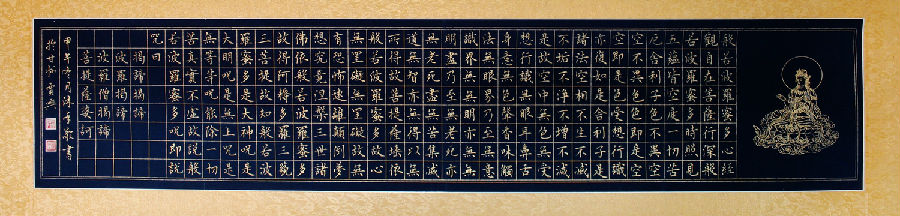 般若波羅蜜多心經
觀自在菩薩行深般
若波羅蜜多時照見
五蘊皆空度一切苦
厄舍利子色不異空
空不異色色即是空
空即是色受想行識
亦復如是舍利子是
諸法空相不生不滅
不垢不淨不增不減
是故空中無色無受
想行識無眼耳鼻舌
身意無色聲香味觸
法無眼界乃至無意
識界無無明亦無無
明盡乃至無老死亦
無老死盡無苦集滅
道無智亦無得以無
所得故菩提薩埵依
般若波羅蜜多故心
無罣礙無罣礙故無
有恐怖遠離顛倒夢
想究竟涅槃三世諸
佛依般若波羅蜜多
故得阿耨多羅三藐
三菩提故知般若波
羅蜜多是大神咒是
大明咒是無上咒是
無等等咒能除一切
苦真實不虛故說般
若波羅蜜多咒即說
咒曰
揭諦揭諦
波羅揭諦
波羅僧揭諦
菩提薩婆訶
甲午年月陳書
於甘肅